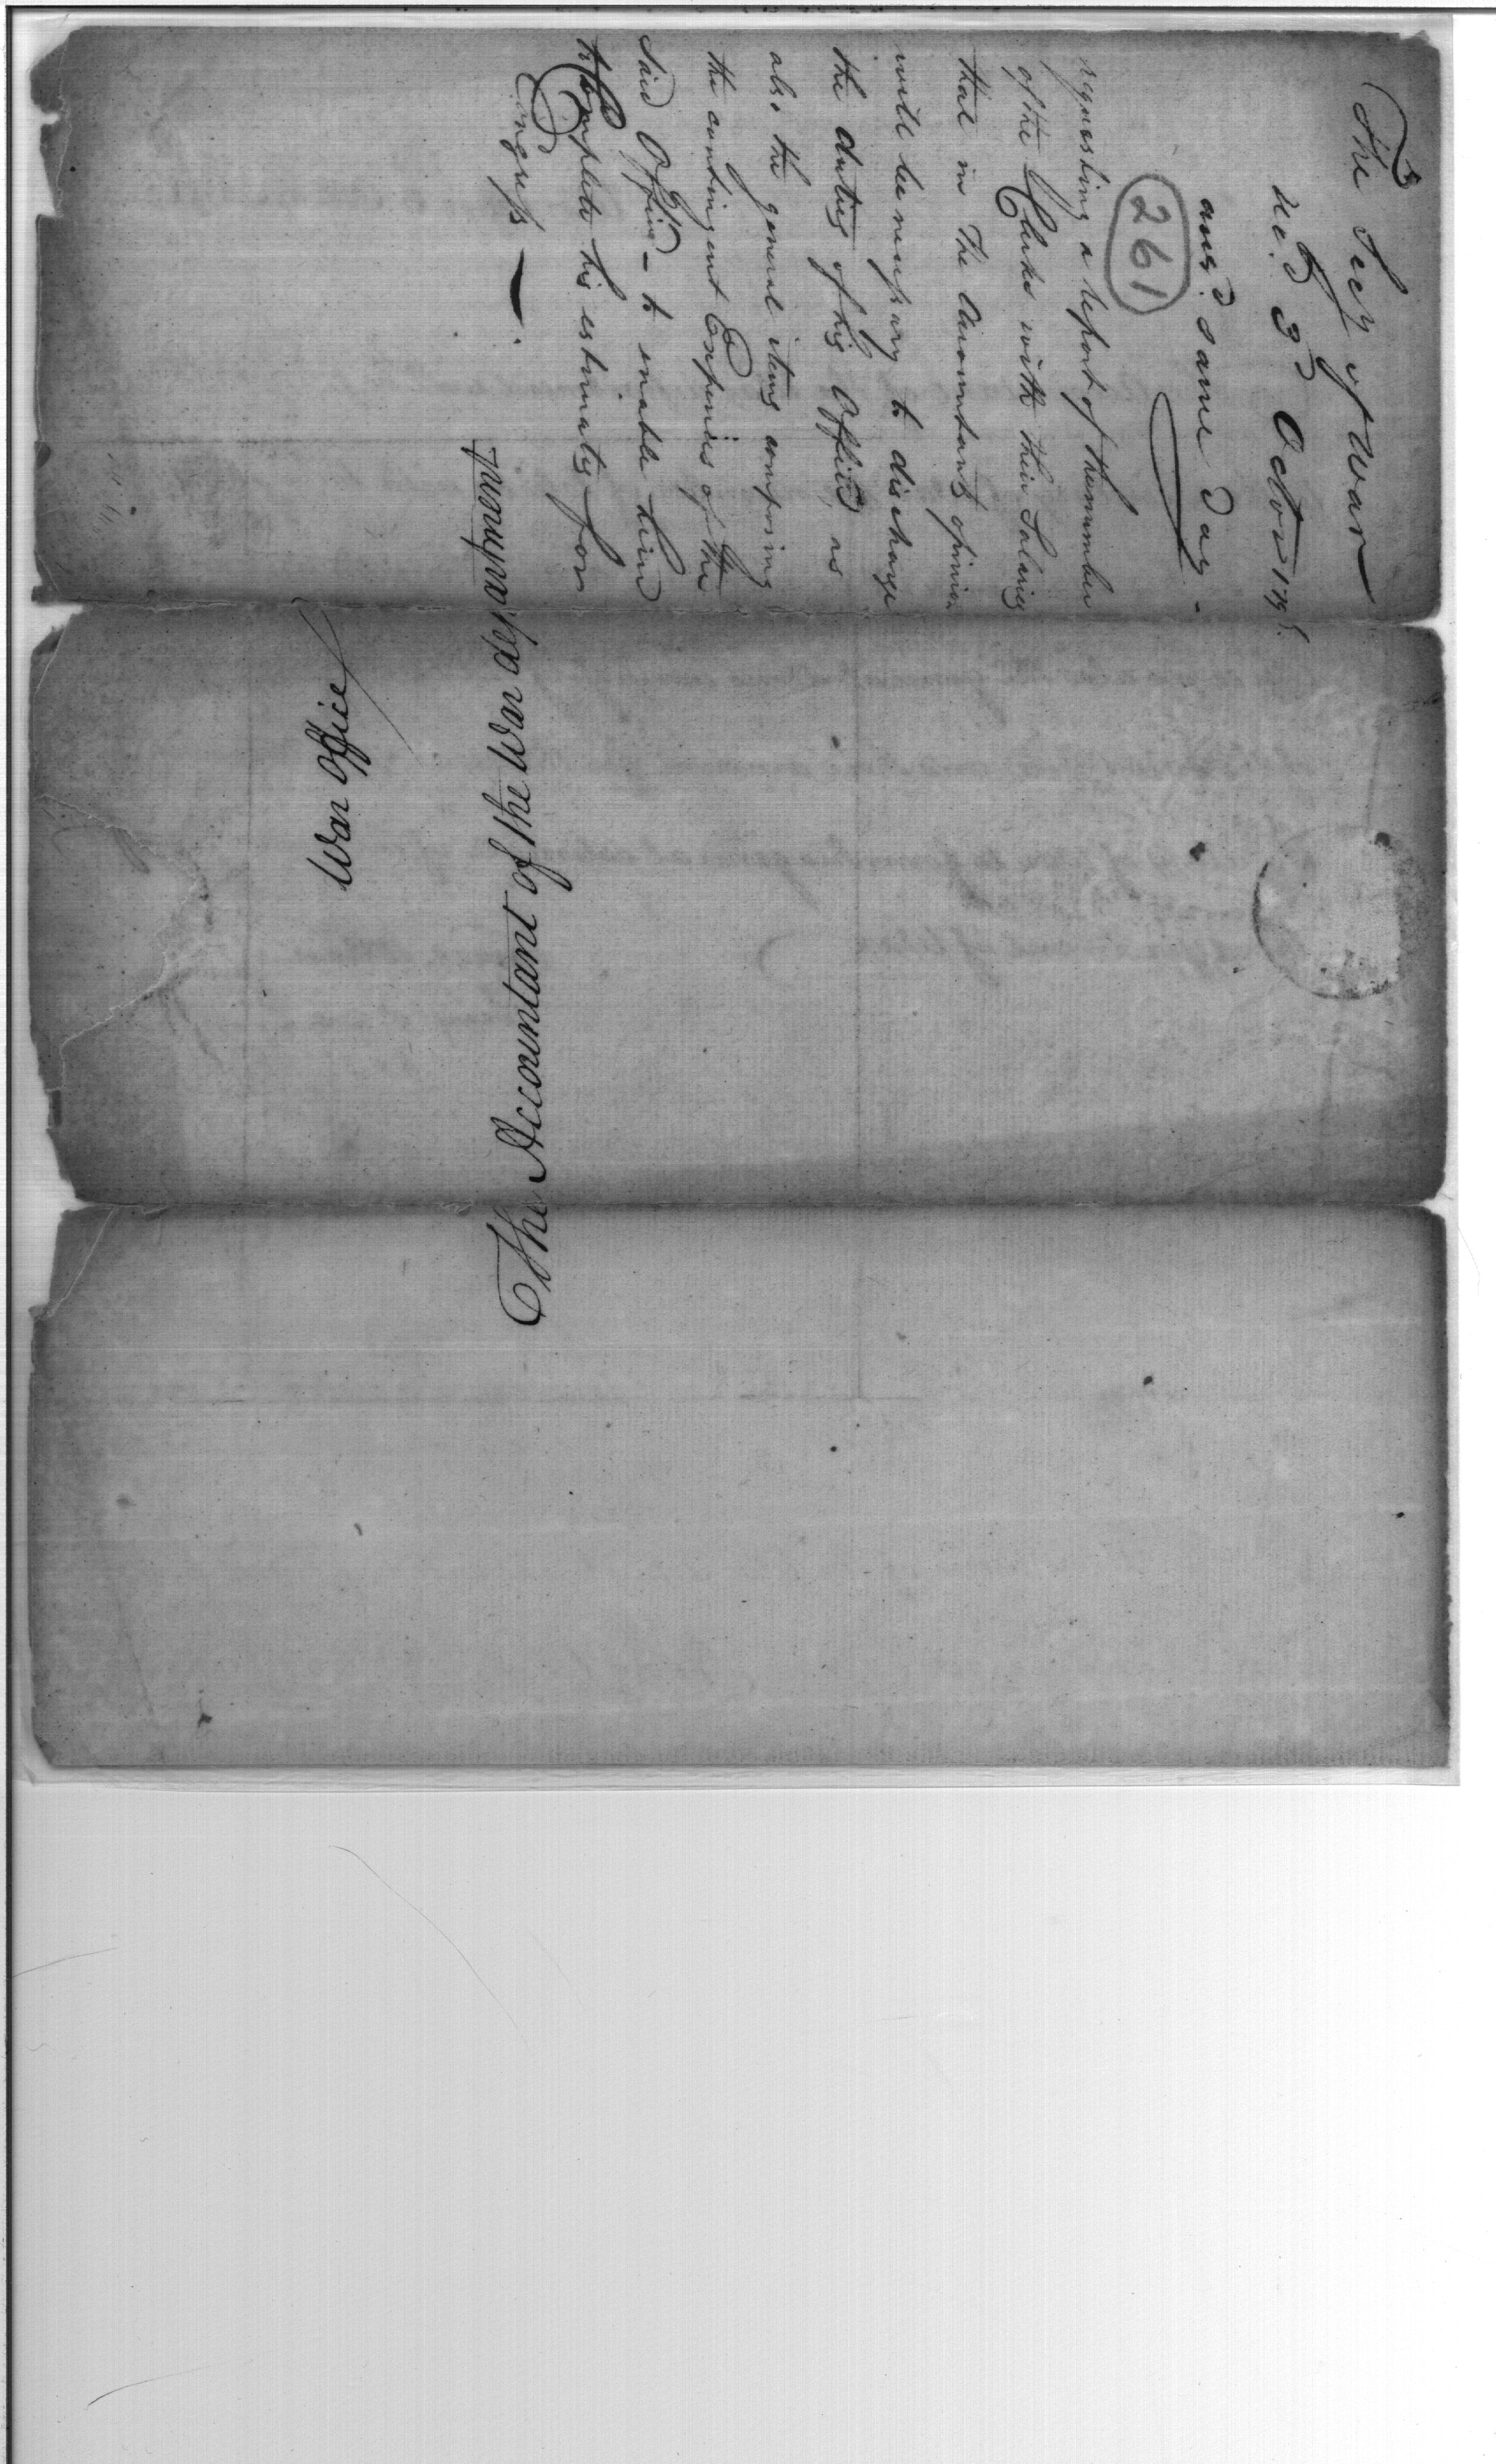 The Secy of War
rec.d 3d Octor 1795.
ansd same day.
261
requesting a report of the number
of the Clerks with their Salaries
that in The Accountants opinion
will be necessary to discharge
the duties of his Office, as
also the general items composing
the contingent Expenses of the
said Office - to enable him
to Complete his estimates for
Congress —.
The Accountant of the War department
War Office